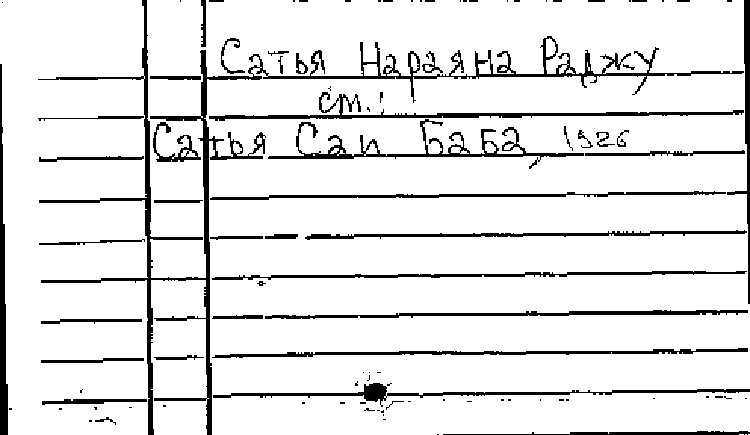 Сатья Нараяна Раджу
см.:
Сатья Саи Баба, 1926